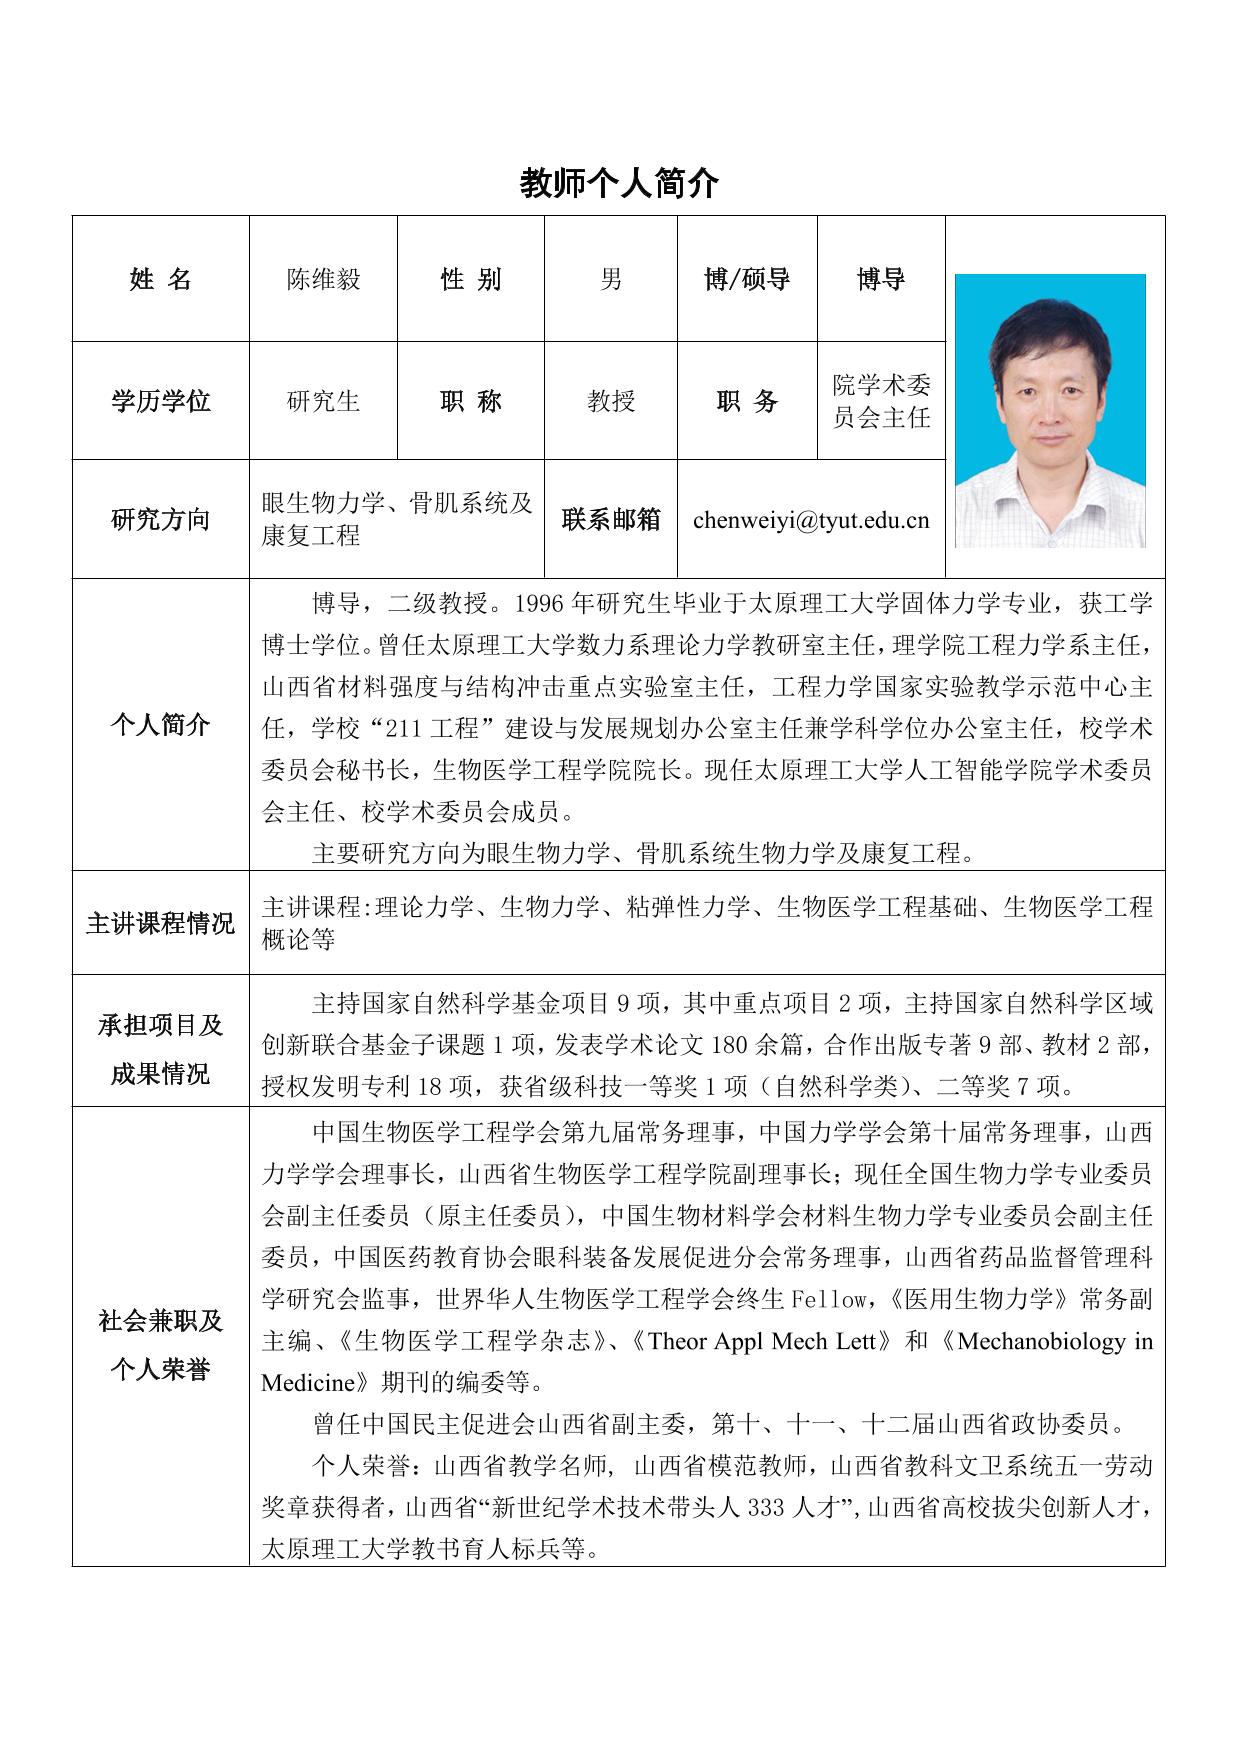 教师个人简介
姓 名 陈维毅 性 别 男 博/硕导 博导
学历学位 研究生 职 称 教授 职 务 院学术委
员会主任
研究方向 眼生物力学、骨肌系统及
康复工程 联系邮箱 chenweiyi@tyut.edu.cn
个人简介
博导，二级教授。1996 年研究生毕业于太原理工大学固体力学专业，获工学
博士学位。曾任太原理工大学数力系理论力学教研室主任，理学院工程力学系主任，
山西省材料强度与结构冲击重点实验室主任，工程力学国家实验教学示范中心主
任，学校“211 工程”建设与发展规划办公室主任兼学科学位办公室主任，校学术
委员会秘书长，生物医学工程学院院长。现任太原理工大学人工智能学院学术委员
会主任、校学术委员会成员。
主要研究方向为眼生物力学、骨肌系统生物力学及康复工程。
主讲课程情况
主讲课程:理论力学、生物力学、粘弹性力学、生物医学工程基础、生物医学工程
概论等
承担项目及
成果情况
主持国家自然科学基金项目 9 项，其中重点项目 2 项，主持国家自然科学区域
创新联合基金子课题 1 项，发表学术论文 180 余篇，合作出版专著 9 部、教材 2 部，
授权发明专利 18 项，获省级科技一等奖 1 项（自然科学类）、二等奖 7 项。
社会兼职及
个人荣誉
中国生物医学工程学会第九届常务理事，中国力学学会第十届常务理事，山西
力学学会理事长，山西省生物医学工程学院副理事长；现任全国生物力学专业委员
会副主任委员（原主任委员），中国生物材料学会材料生物力学专业委员会副主任
委员，中国医药教育协会眼科装备发展促进分会常务理事，山西省药品监督管理科
学研究会监事，世界华人生物医学工程学会终生 Fellow，《医用生物力学》常务副
主编、《生物医学工程学杂志》、《Theor Appl Mech Lett》和《Mechanobiology in
Medicine》期刊的编委等。
曾任中国民主促进会山西省副主委，第十、十一、十二届山西省政协委员。
个人荣誉：山西省教学名师, 山西省模范教师，山西省教科文卫系统五一劳动
奖章获得者，山西省“新世纪学术技术带头人 333 人才”, 山西省高校拔尖创新人才，
太原理工大学教书育人标兵等。